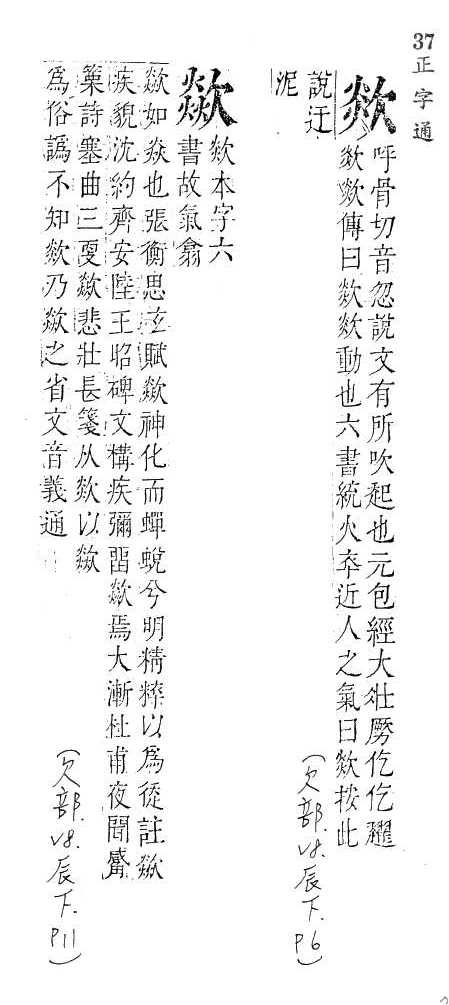 37正字通
欻
呼骨切音忽說文有所吹起也元包經大壯赑仡仡躍
欻欻傳曰欻欻動也六書統火夲近人之氣曰欻按此
說迂
泥
(欠部.v8.辰下.P6)
歘
欻本字六
書故氣翕
歘如猋也張衡思玄賦歘神化而蟬蛻兮明精粹以爲徒註歘
疾貌沈約齊安陸王昭碑文構疾彌畱歘焉大漸杜甫夜聞觱
篥詩塞曲三更歘悲壯長箋从欻以歘
爲俗譌不知欻乃歘之省文音義通
(欠部.v8.辰下.P11)